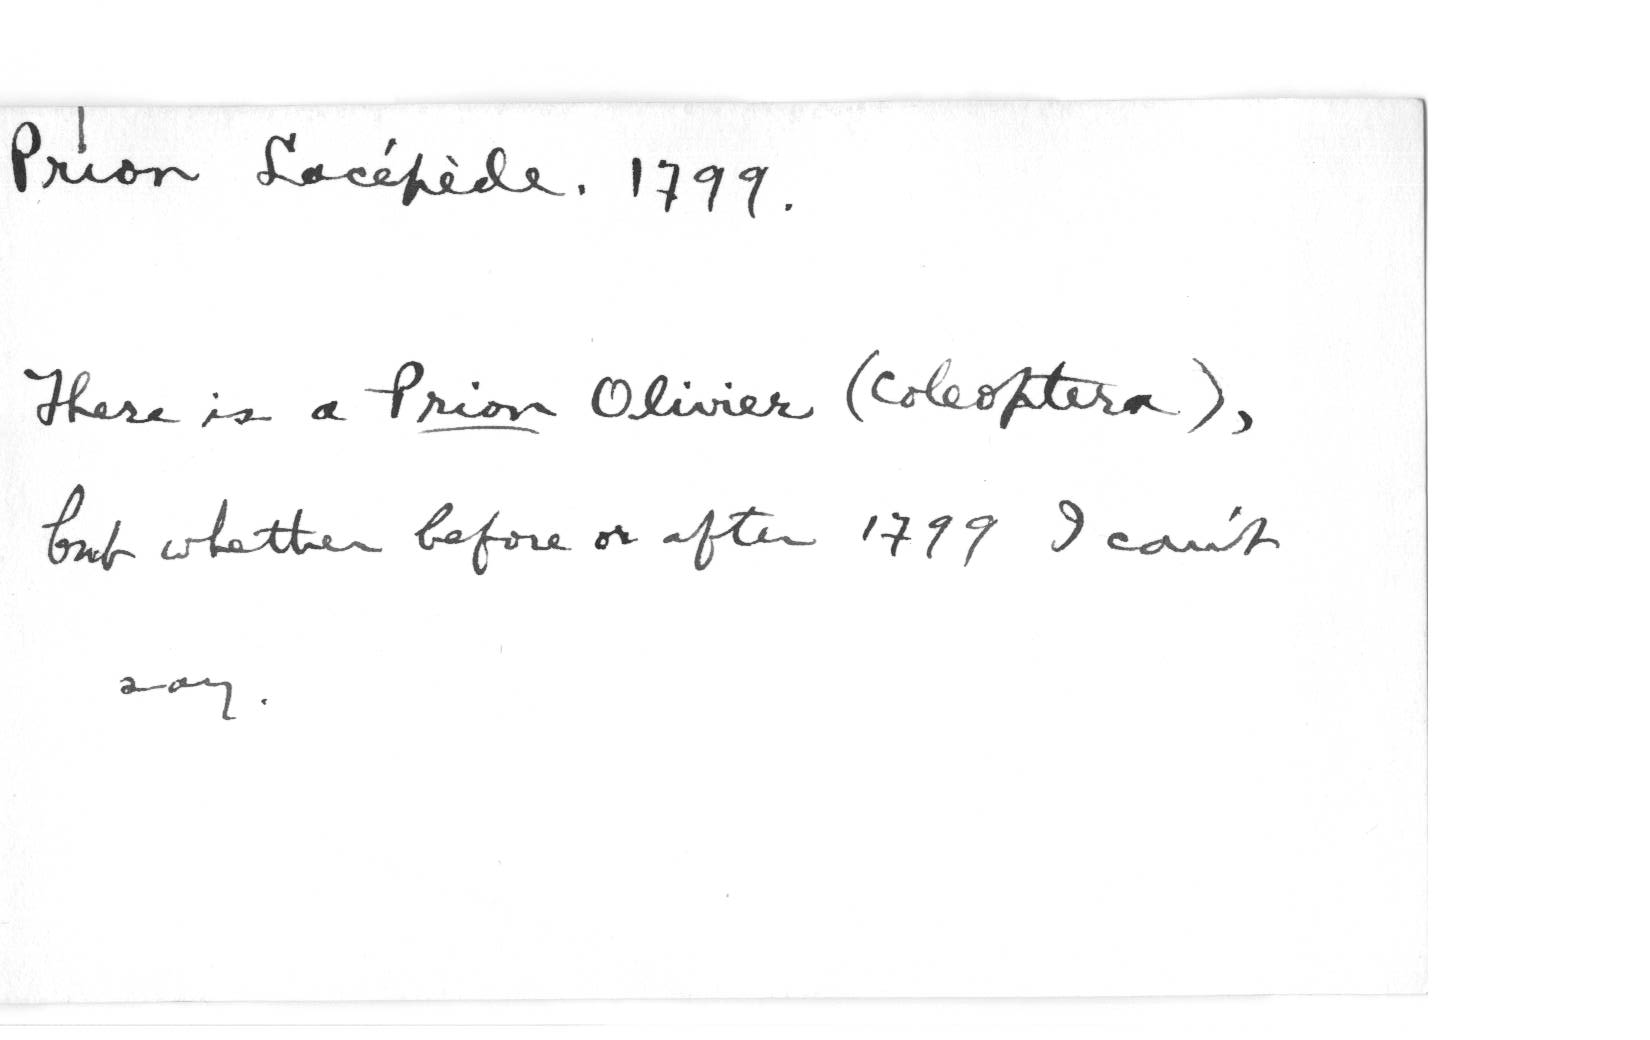 Prion Lacépède. 1799.
There is a Prion Olivier (Coleoptera),
but whether before or after 1799 I can't
say.